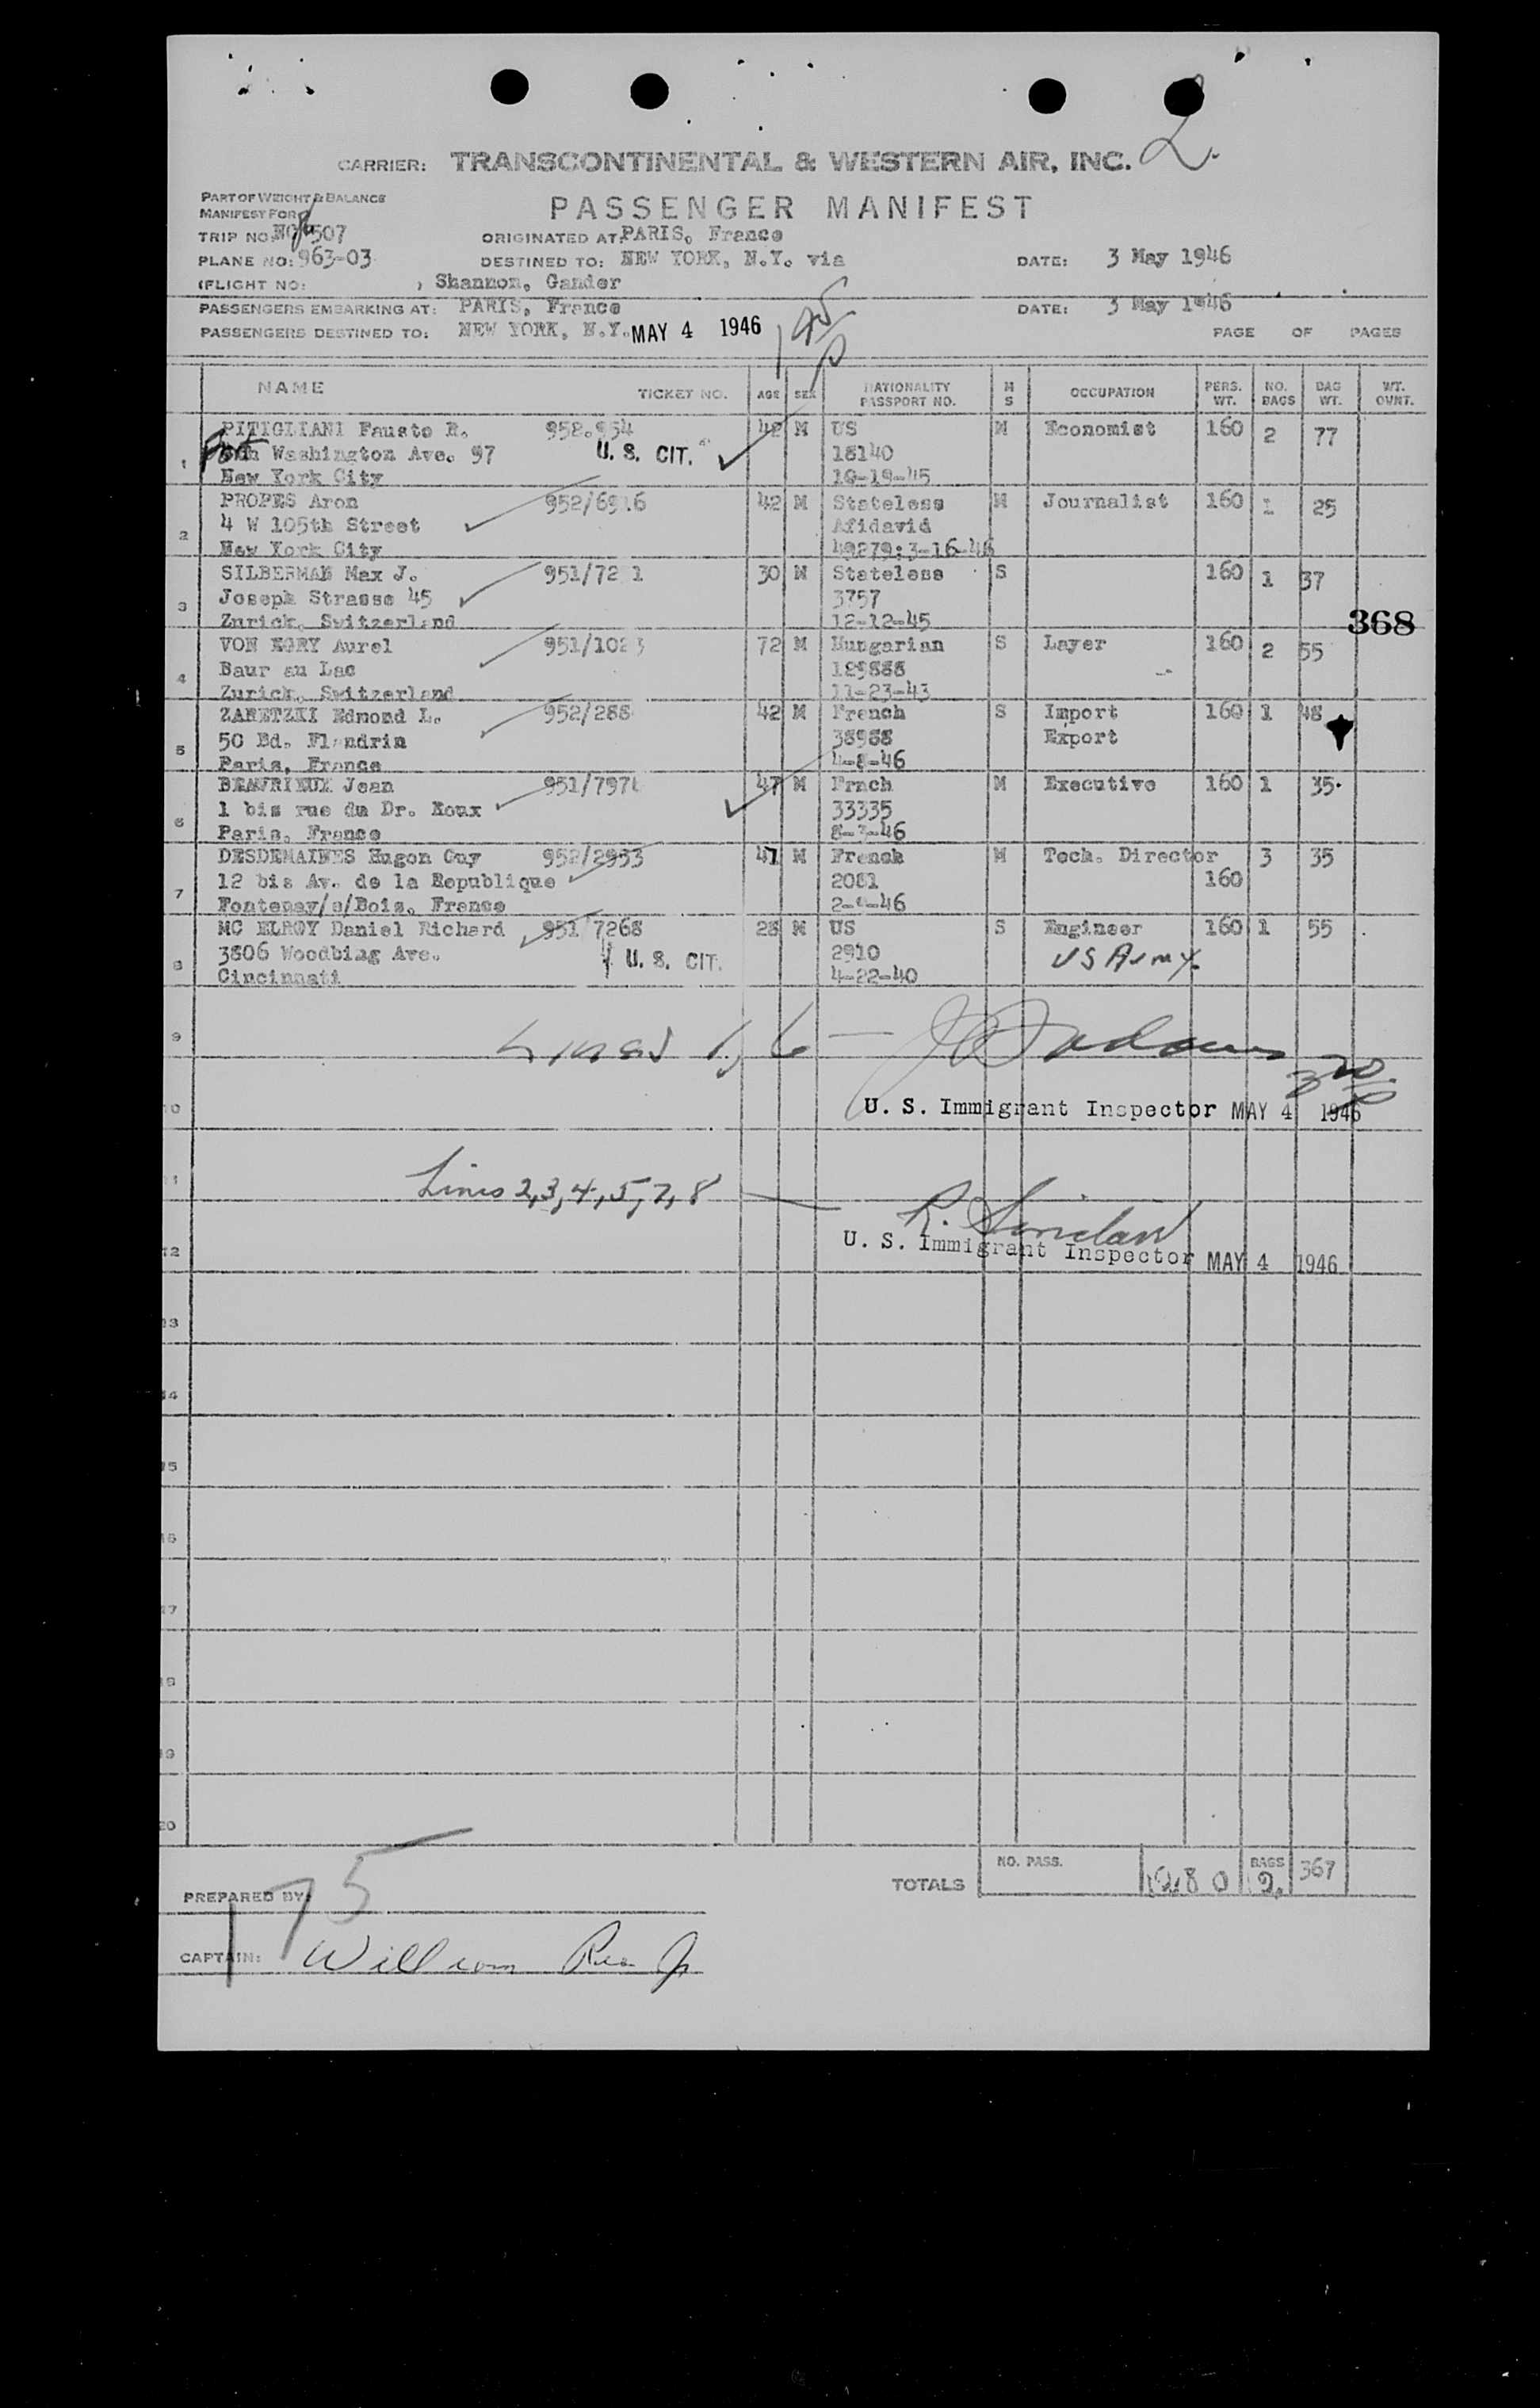 2.
CARRIER: TRANSCONTINENTAL & WESTERN AIR, INC.
PART OF WEIGHT & BALANCE
MANIFEST FOR
PASSENGER MANIFEST
TRIP NO: 507 ORIGINATED AT: PARIS, France
PLANE NO: 963-03 DESTINED TO: NEW YORK, N.Y. via DATE: 3 May 1946
(FLIGHT NO: ) Shannon, Gander
PASSENGERS EMBARKING AT: PARIS, France DATE: 3 May 1946
PASSENGERS DESTINED TO: NEW YORK, N.Y. MAY 4 1946 PAGE OF PAGES
NAME TICKET NO. AGE SEX NATIONALITY PASSPORT NO. M S OCCUPATION PERS. WT. NO. BAGS BAG WT. WT. OVNT.
PITIGLIANI Fausto R. 958.954 42 M US M Economist 160 2 77
1 Washington Ave. 97 U. S. CIT. 18140
New York City 10-19-45
PROPES Aron 952/6916 42 M Stateless M Journalist 160 1 25
2 4 W 105th Street Afidavid
New York City 49279:3-16-46
SILBERMAN Max J. 951/72 1 30 M Stateless S 160 1 37
3 Joseph Strasse 45 3757
Zurich, Switzerland 12-12-45
368
VON EGRY Aurel 951/1023 72 M Hungarian S Layer 160 2 55
4 Baur au Lac 129888
Zurich, Switzerland 11-23-43
ZARETZKI Edmond L. 952/288 42 M French S Import 160 1 48
5 50 Bd. Flandrin 38988 Export
Paris, France 4-8-46
BEAUFRIEUX Jean 951/797 47 M Frnch M Executive 160 1 35
6 1 bis rue du Dr. Roux 33335
Paris, France 8-3-46
DESDEMAINES Hugon Guy 952/2953 47 M French M Tech. Director 3 35
7 12 bis Av. de la Republique 2081 160
Fontenay/s/Bois, France
MC ELROY Daniel Richard 951 7268 28 M US S Engineer 160 1 55
8 3806 Woodbing Ave. U. S. CIT. 2910 US Army
Cincinnati 4-22-40
9 Lines 1, 6 —
10 U. S. Immigrant Inspector MAY 4 1946
11 Lines 2,3,4,5,7,8 —
12 U. S. Immigrant Inspector MAY 4 1946
13
14
15
16
17
18
19
20
TOTALS NO. PASS. 1280 BAGS 367
PREPARED BY: 175
CAPTAIN: William Rea Jr